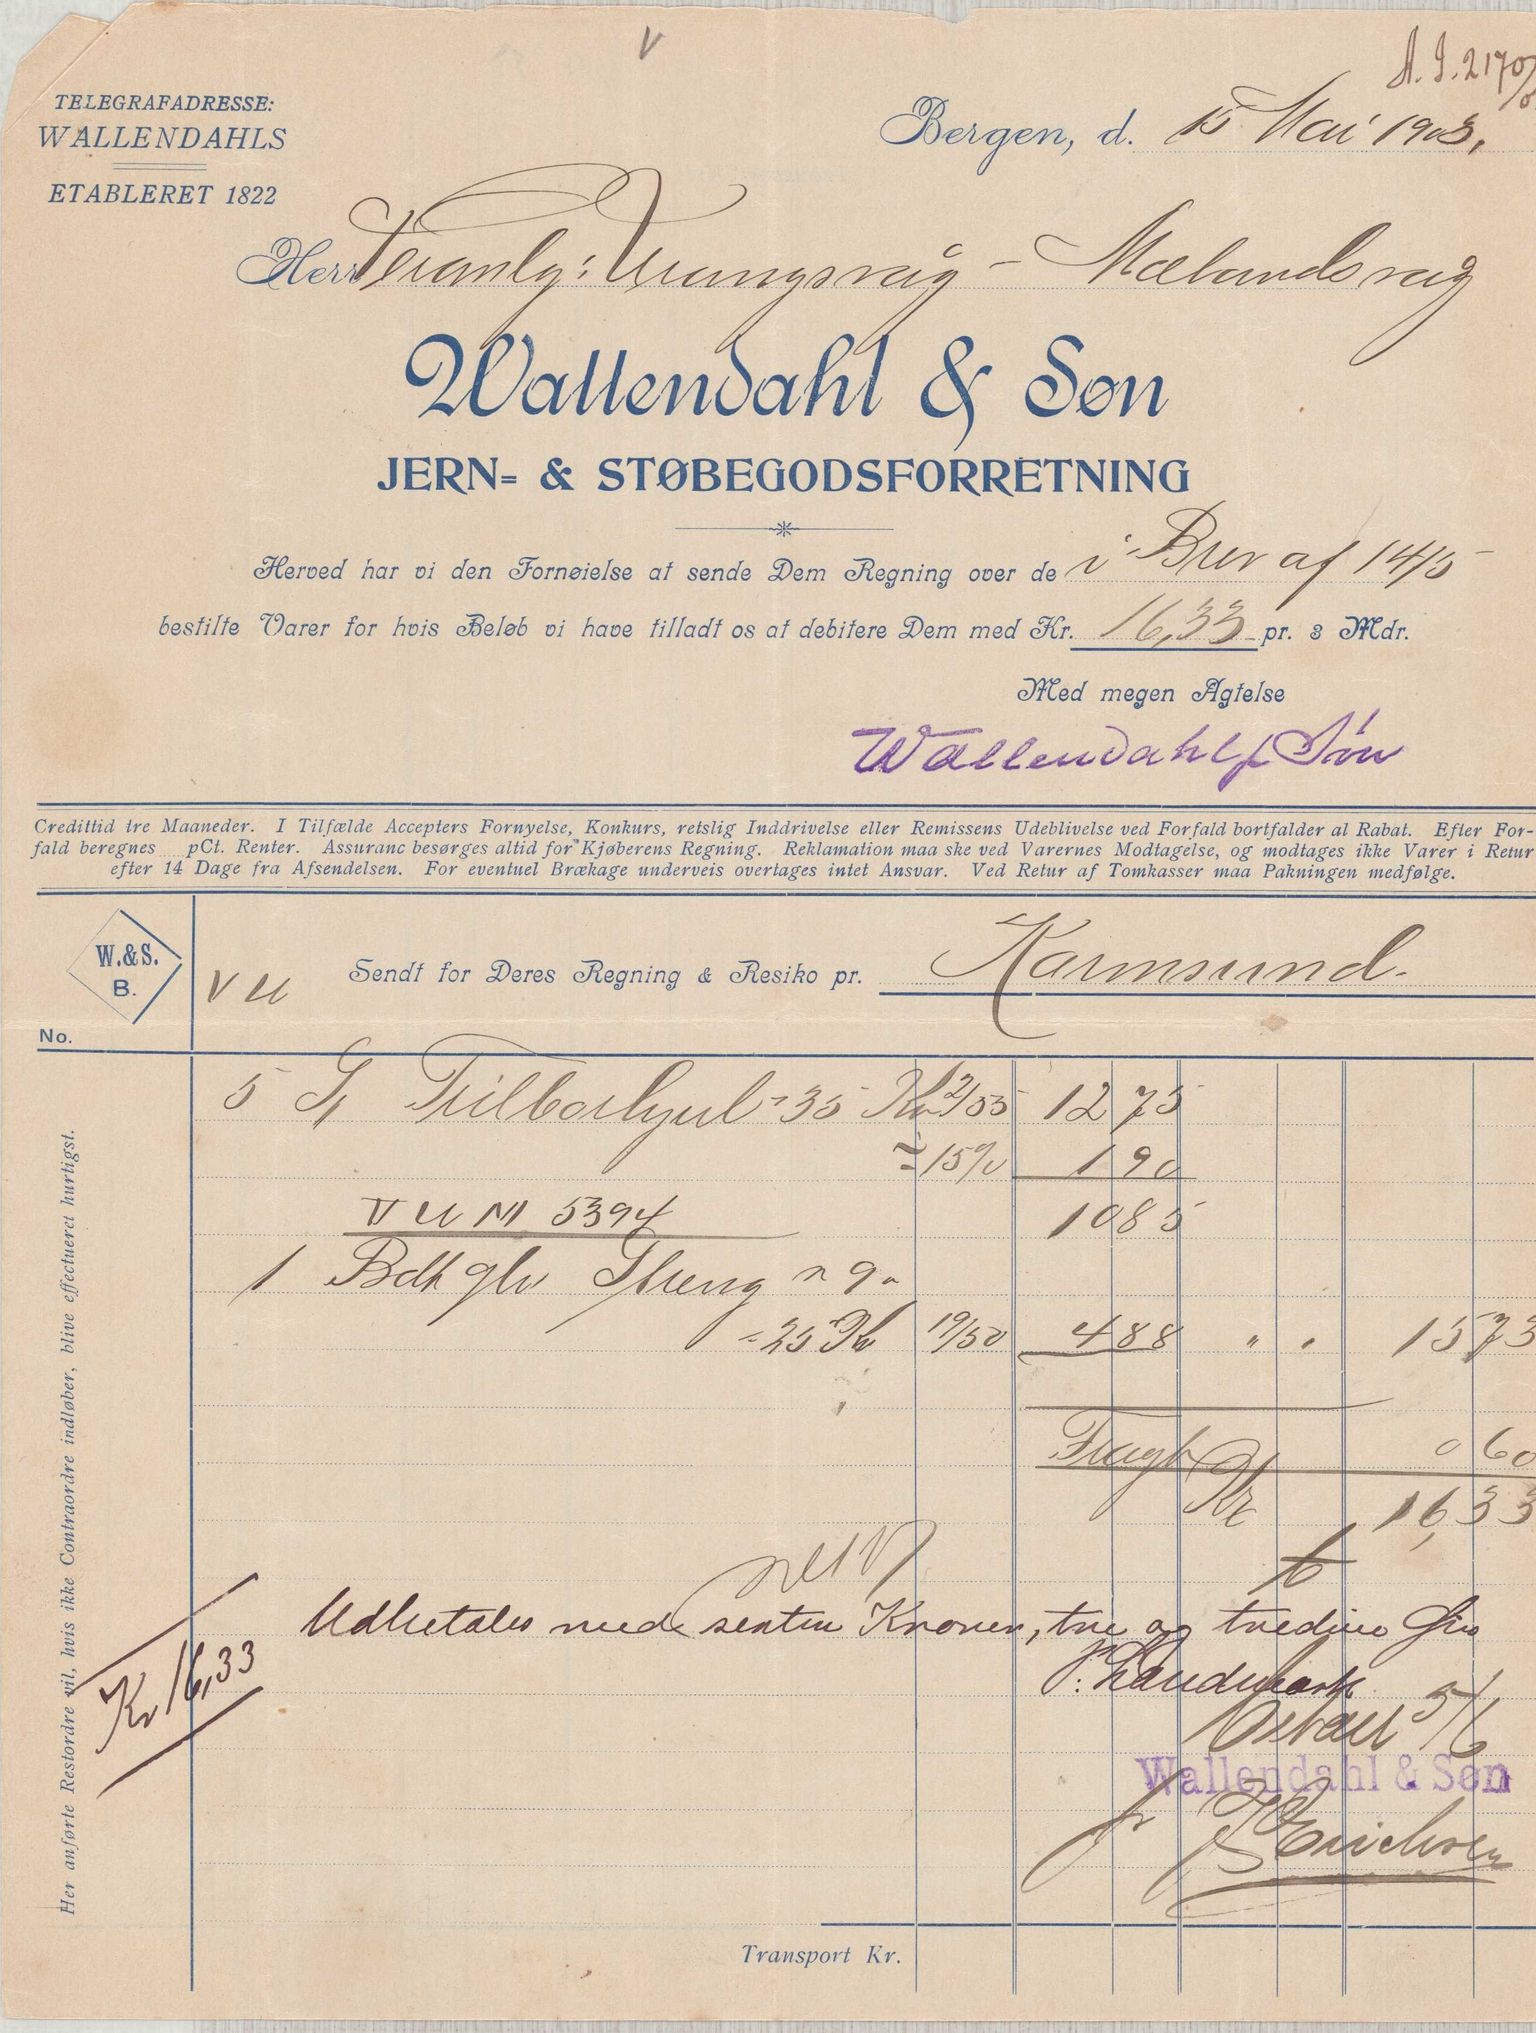 TELEGRAFADRESSE:
WALLENDAHLS
ETABLERET 1822
Bergen, d. 15 Mai 1903.
Herr Veranlg: Urangsvåg - Mælandsvåg
Wallendahl & Søn
JERN= & STØBEGODSFORRETNING
Herved har vi den Fornøielse at sende Dem Regning over de i Brev af 14/5
bestilte Varer for hvis Beløb vi have tilladt os at debitere Dem med Kr. 16,33 pr. 3 Mdr.
Med megen Agtelse
Wallendahl & Søn
Credittid tre Maaneder. I Tilfælde Accepters Fornyelse, Konkurs, retslig Inddrivelse eller Remissens Udeblivelse ved Forfald bortfalder al Rabat. Efter For-
fald beregnes pCt. Renter. Assuranc besørges altid for Kjøberens Regning. Reklamation maa ske ved Varernes Modtagelse, og modtages ikke Varer i Retur
efter 14 Dage fra Afsendelsen. For eventuel Brækage underveis overtages intet Ansvar. Ved Retur af Tomkasser maa Pakningen medfølge.
W.&S.
B.
V U
Sendt for Deres Regning & Resiko pr. Karmsund.
No.
5 Trilborhjul - 35 2/55 12 75
÷ 15% 1 90
V U M 5394 10 85
1 Bdt glv Streng n 9
- 25 19/50 4 88 " " 15 73
Fragt 0 60
Kr 16,33
Udbetales med sexten Kroner, tre og tredive Øre
P. Landmark
Kr 16,33
Betalt 5/6
Wallendahl & Søn
Erichsen
Her anførte Restordre vil, hvis ikke Contraordre indløber, blive effectueret hurtigst.
Transport Kr.